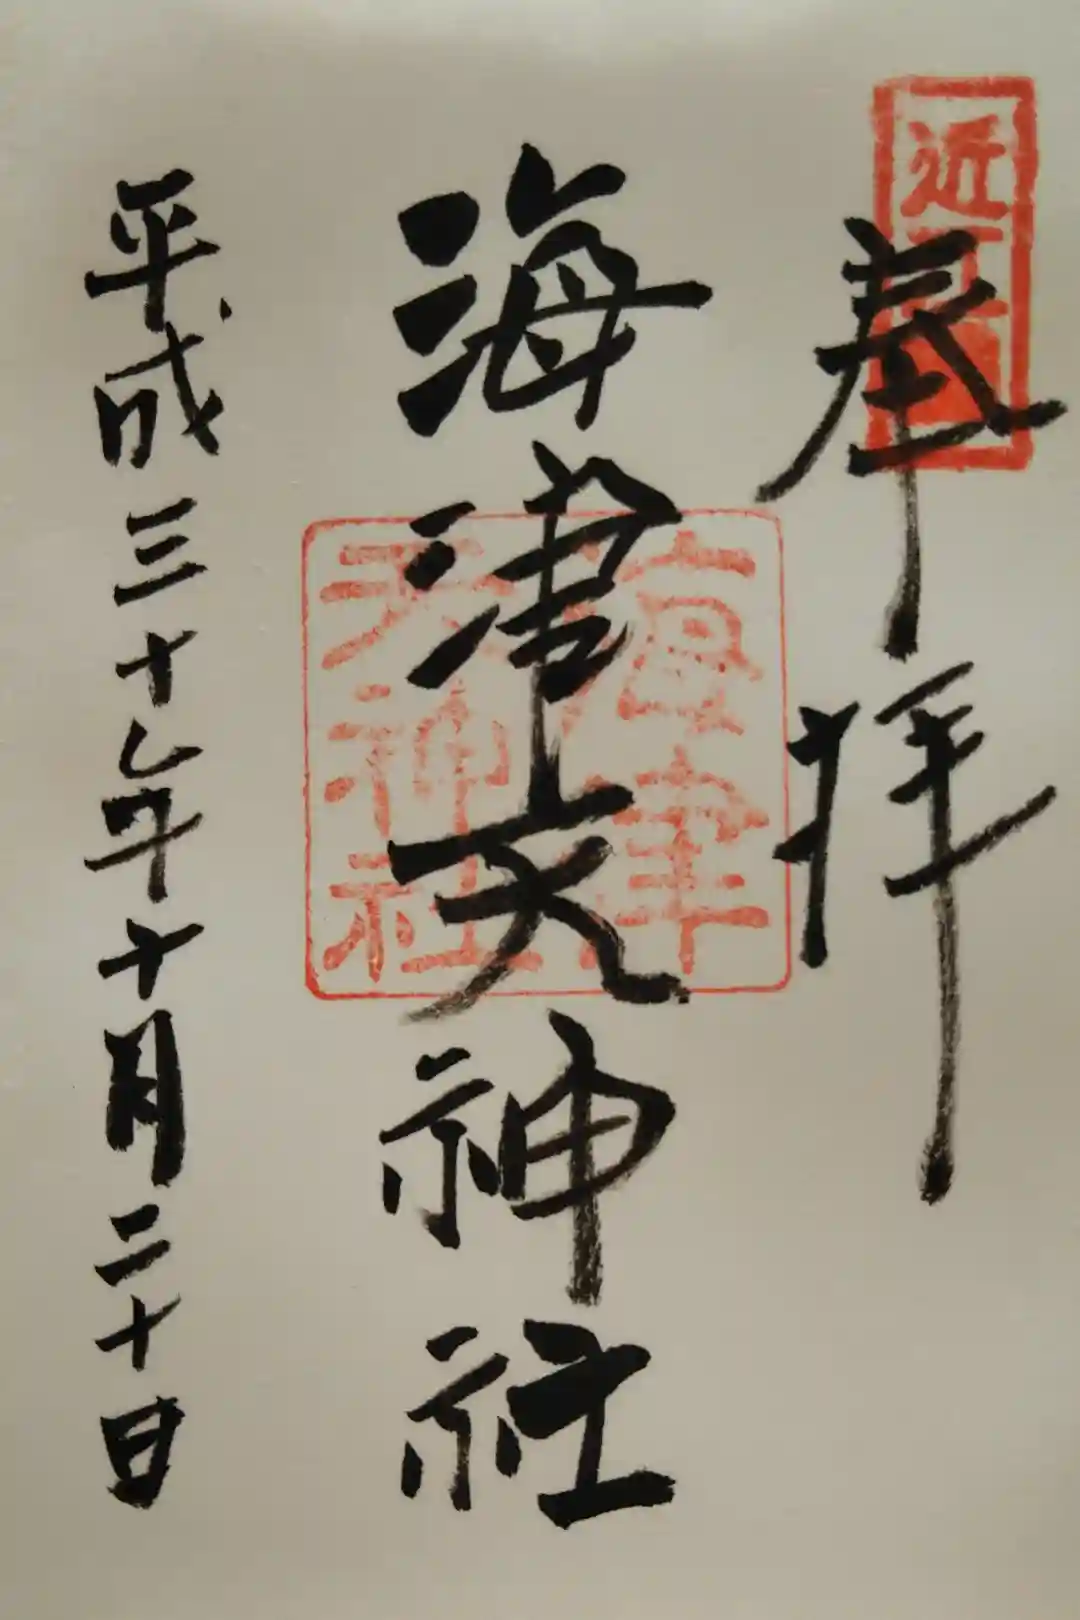 奉拝
海津天神社
平成三十年十月二十日
海津
天神社
近江